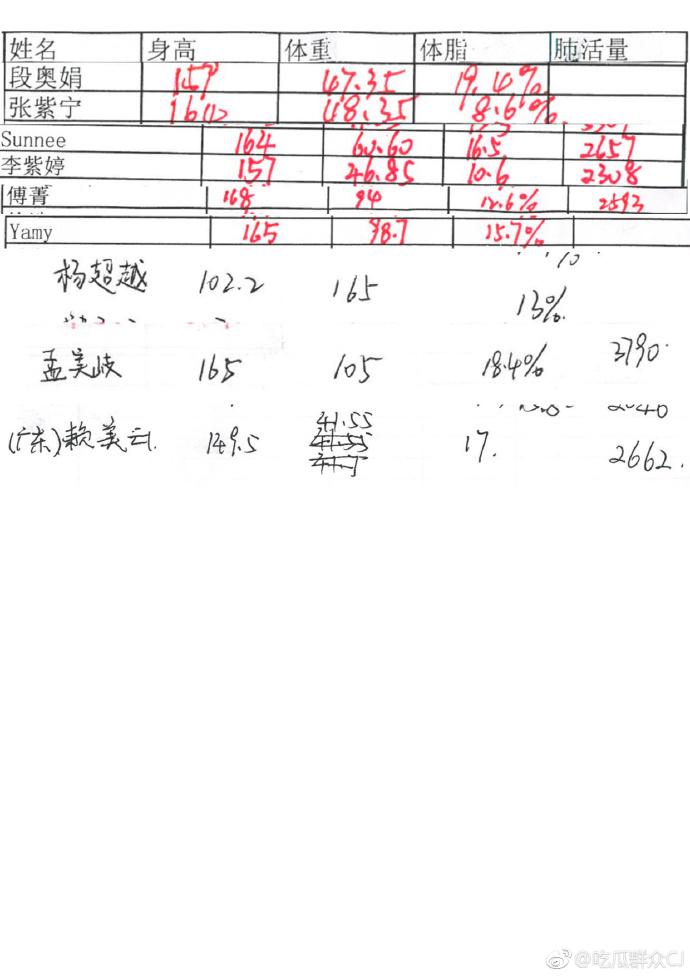 姓名 身高 体重 体脂 肺活量
段奥娟 157 47.35 19.4%
张紫宁 160 48.35 18.6%
Sunnee 164 60.60 16.5 2657
李紫婷 157 46.85 10.6 2308
傅菁 168 94 12.6% 2593
Yamy 165 98.7 15.7%
杨超越 102.2 165 13%
孟美岐 165 105 18.4% 3790
(广东)赖美云 149.5 41.55 17. 2662
@吃瓜群众CJ